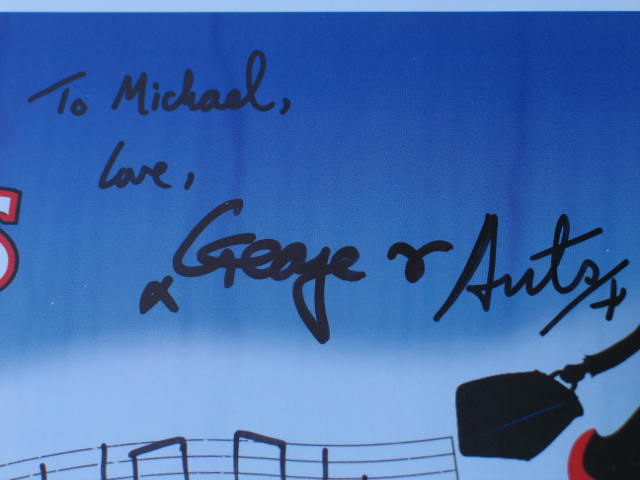 To Michael,
Love,
George r Ants